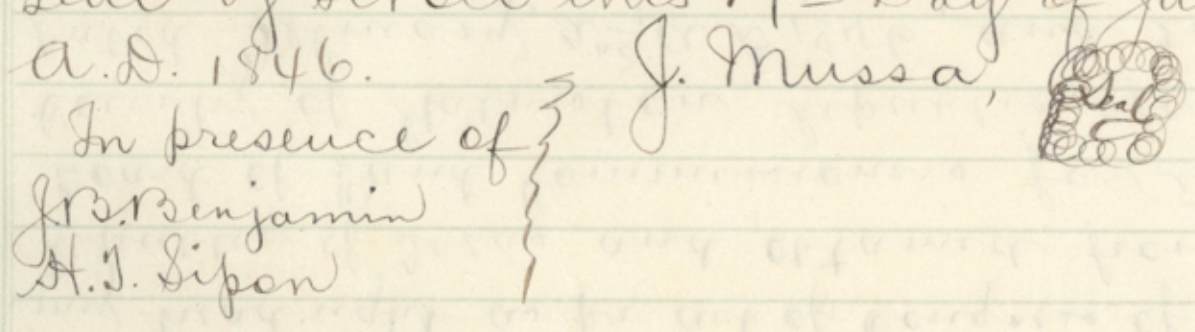 A.D. 1846.
J. Mussa,
Seal
In presence of
J.B. Benjamin
H.T. Sipon